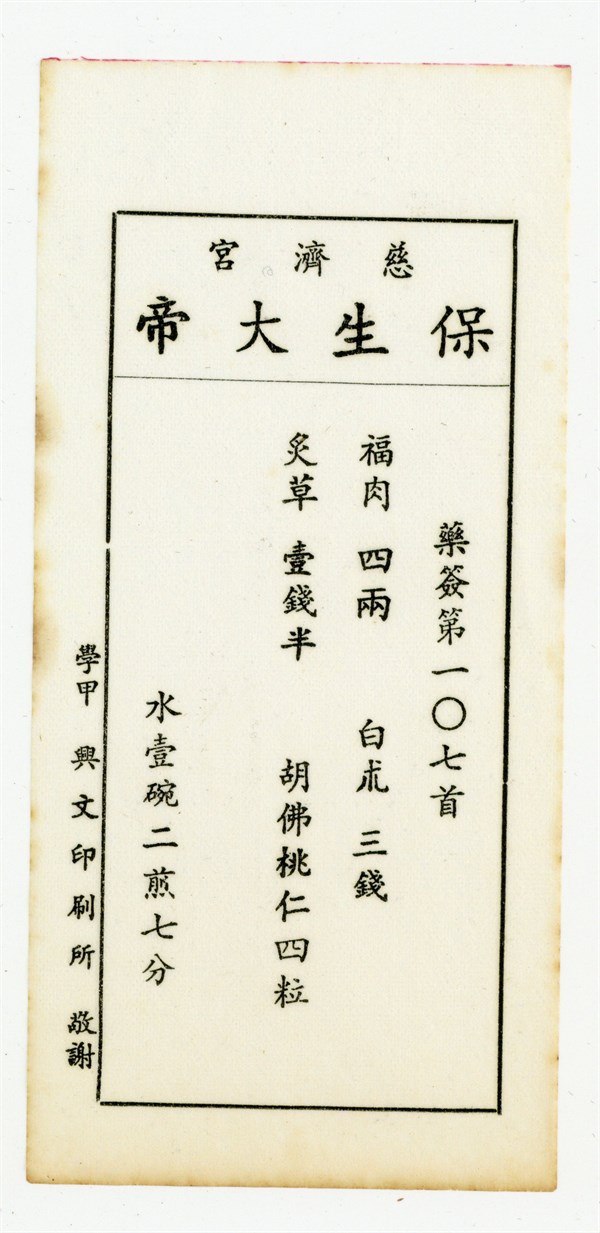 慈濟宮
保生大帝
藥簽第一〇七首
福肉 四兩 白朮 三錢
炙草 壹錢半 胡佛桃仁四粒
水壹碗二煎七分
學甲 興文印刷所 敬謝